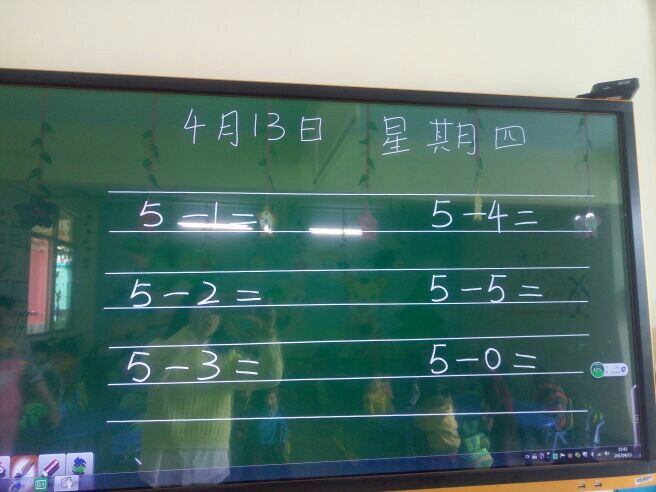 4月13日 星期四
5-1= 5-4=
5-2= 5-5=
5-3= 5-0=